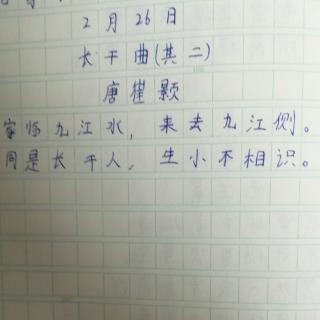 2月26日
长干曲(其二)
唐崔颢
家临九江水，来去九江侧。
同是长干人，生小不相识。